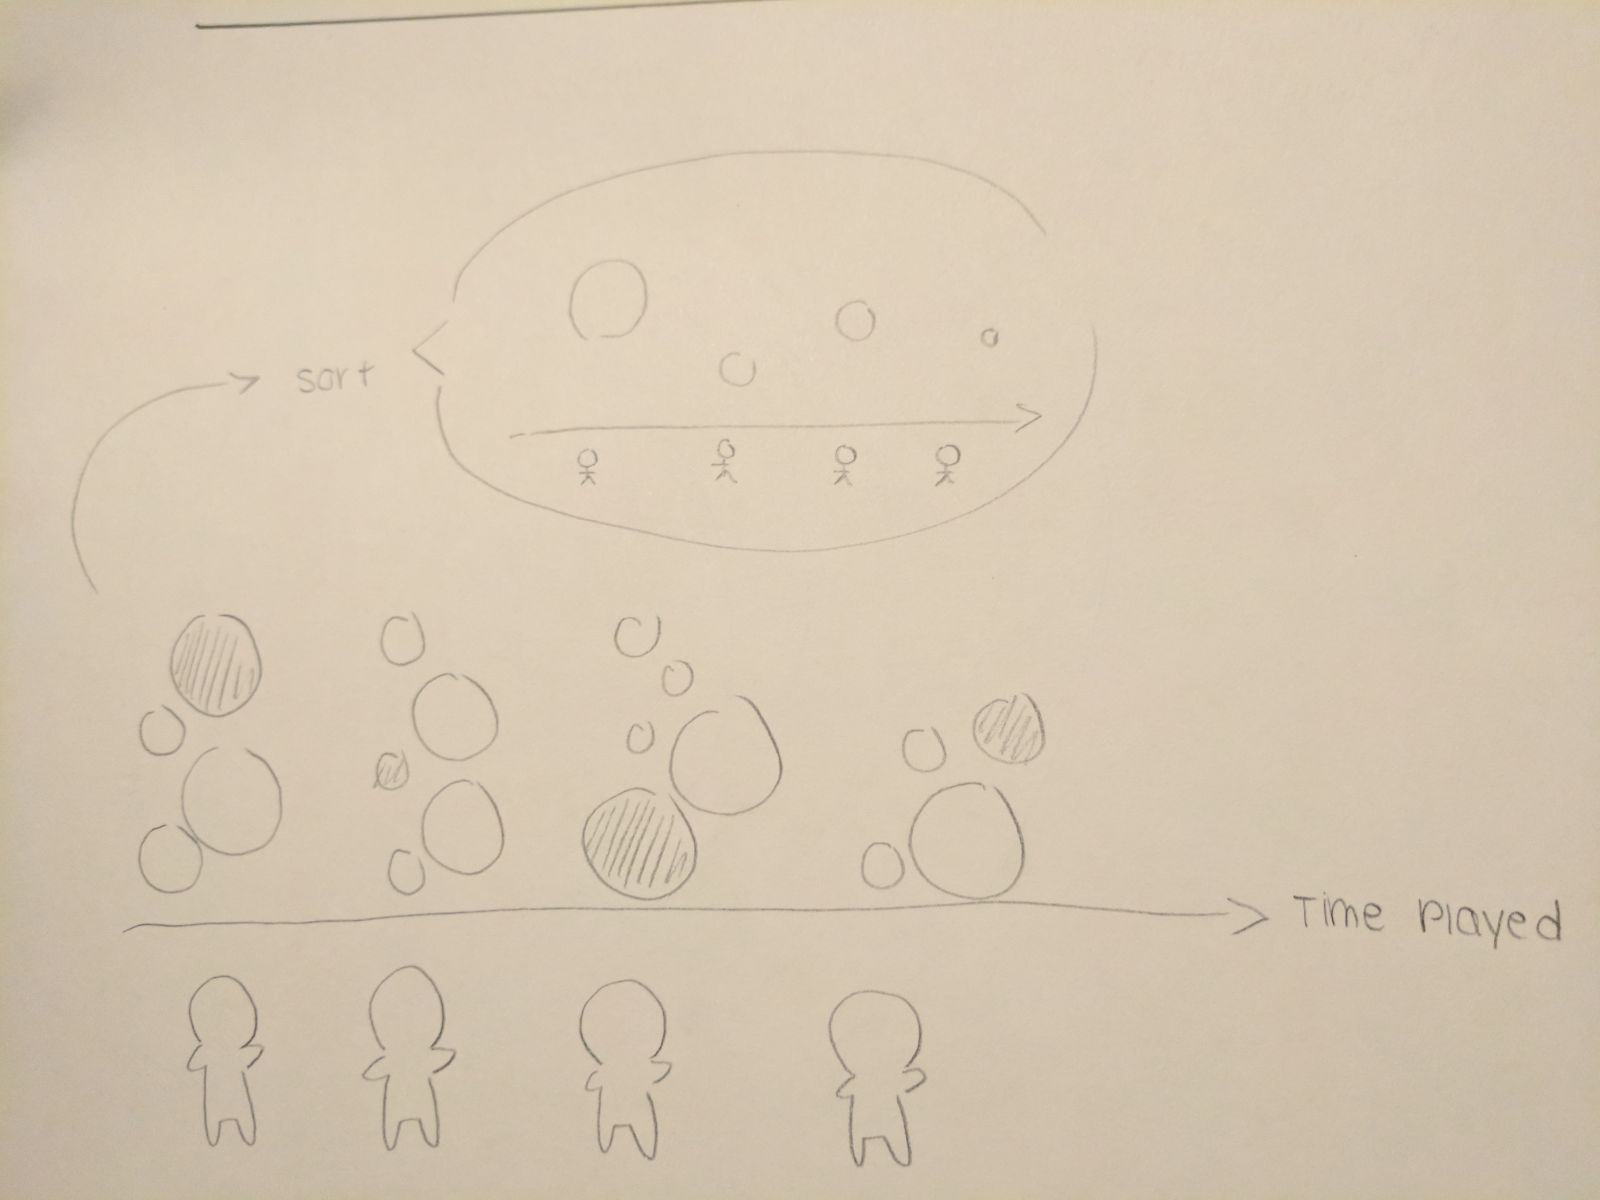 sort
Time Played